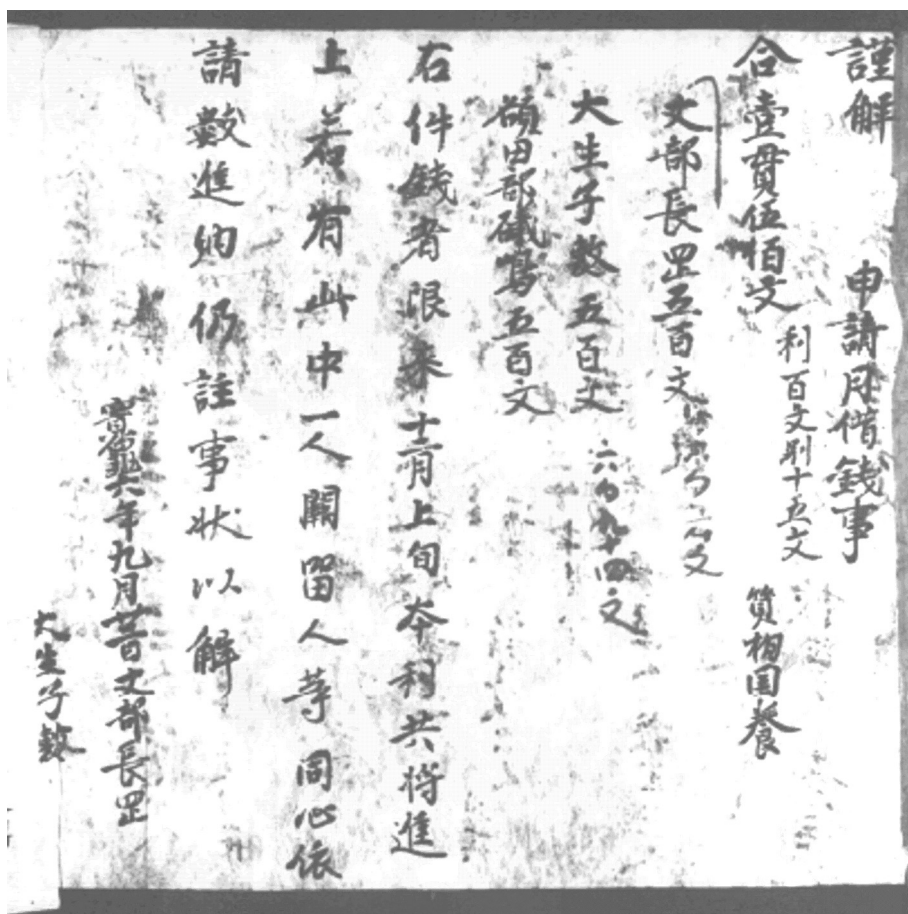 謹解 申請月借錢事
合壹貫伍佰文 利百文別十五文 質相國養
丈部長罡五百文
大生子數五百文 六 九十四文
額田部礒嶌五百文
右件錢者限来十一月上旬本利共将進
上若有此中一人闕留人等同心依
請數進納仍註事狀以解
寳龜六年九月廿日丈部長罡
大生子數